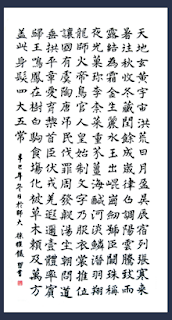 天地玄黃宇宙洪荒日月盈昃辰宿列張寒來
暑往秋收冬藏閏餘成歲律呂調陽雲騰致雨
露結為霜金生麗水玉出崑崗劍號巨闕珠稱
夜光菓珍李柰菜重芥薑海鹹河淡鱗潛羽翔
龍師火帝鳥官人皇始制文字乃服衣裳推位
讓國有虞陶唐弔民伐罪周發湯坐朝問道
垂拱平章愛育黎首臣伏戎羌遐邇壹體率賓
歸王鳴鳳在樹白駒食場化被草木賴及萬方
蓋此身髮四大五常